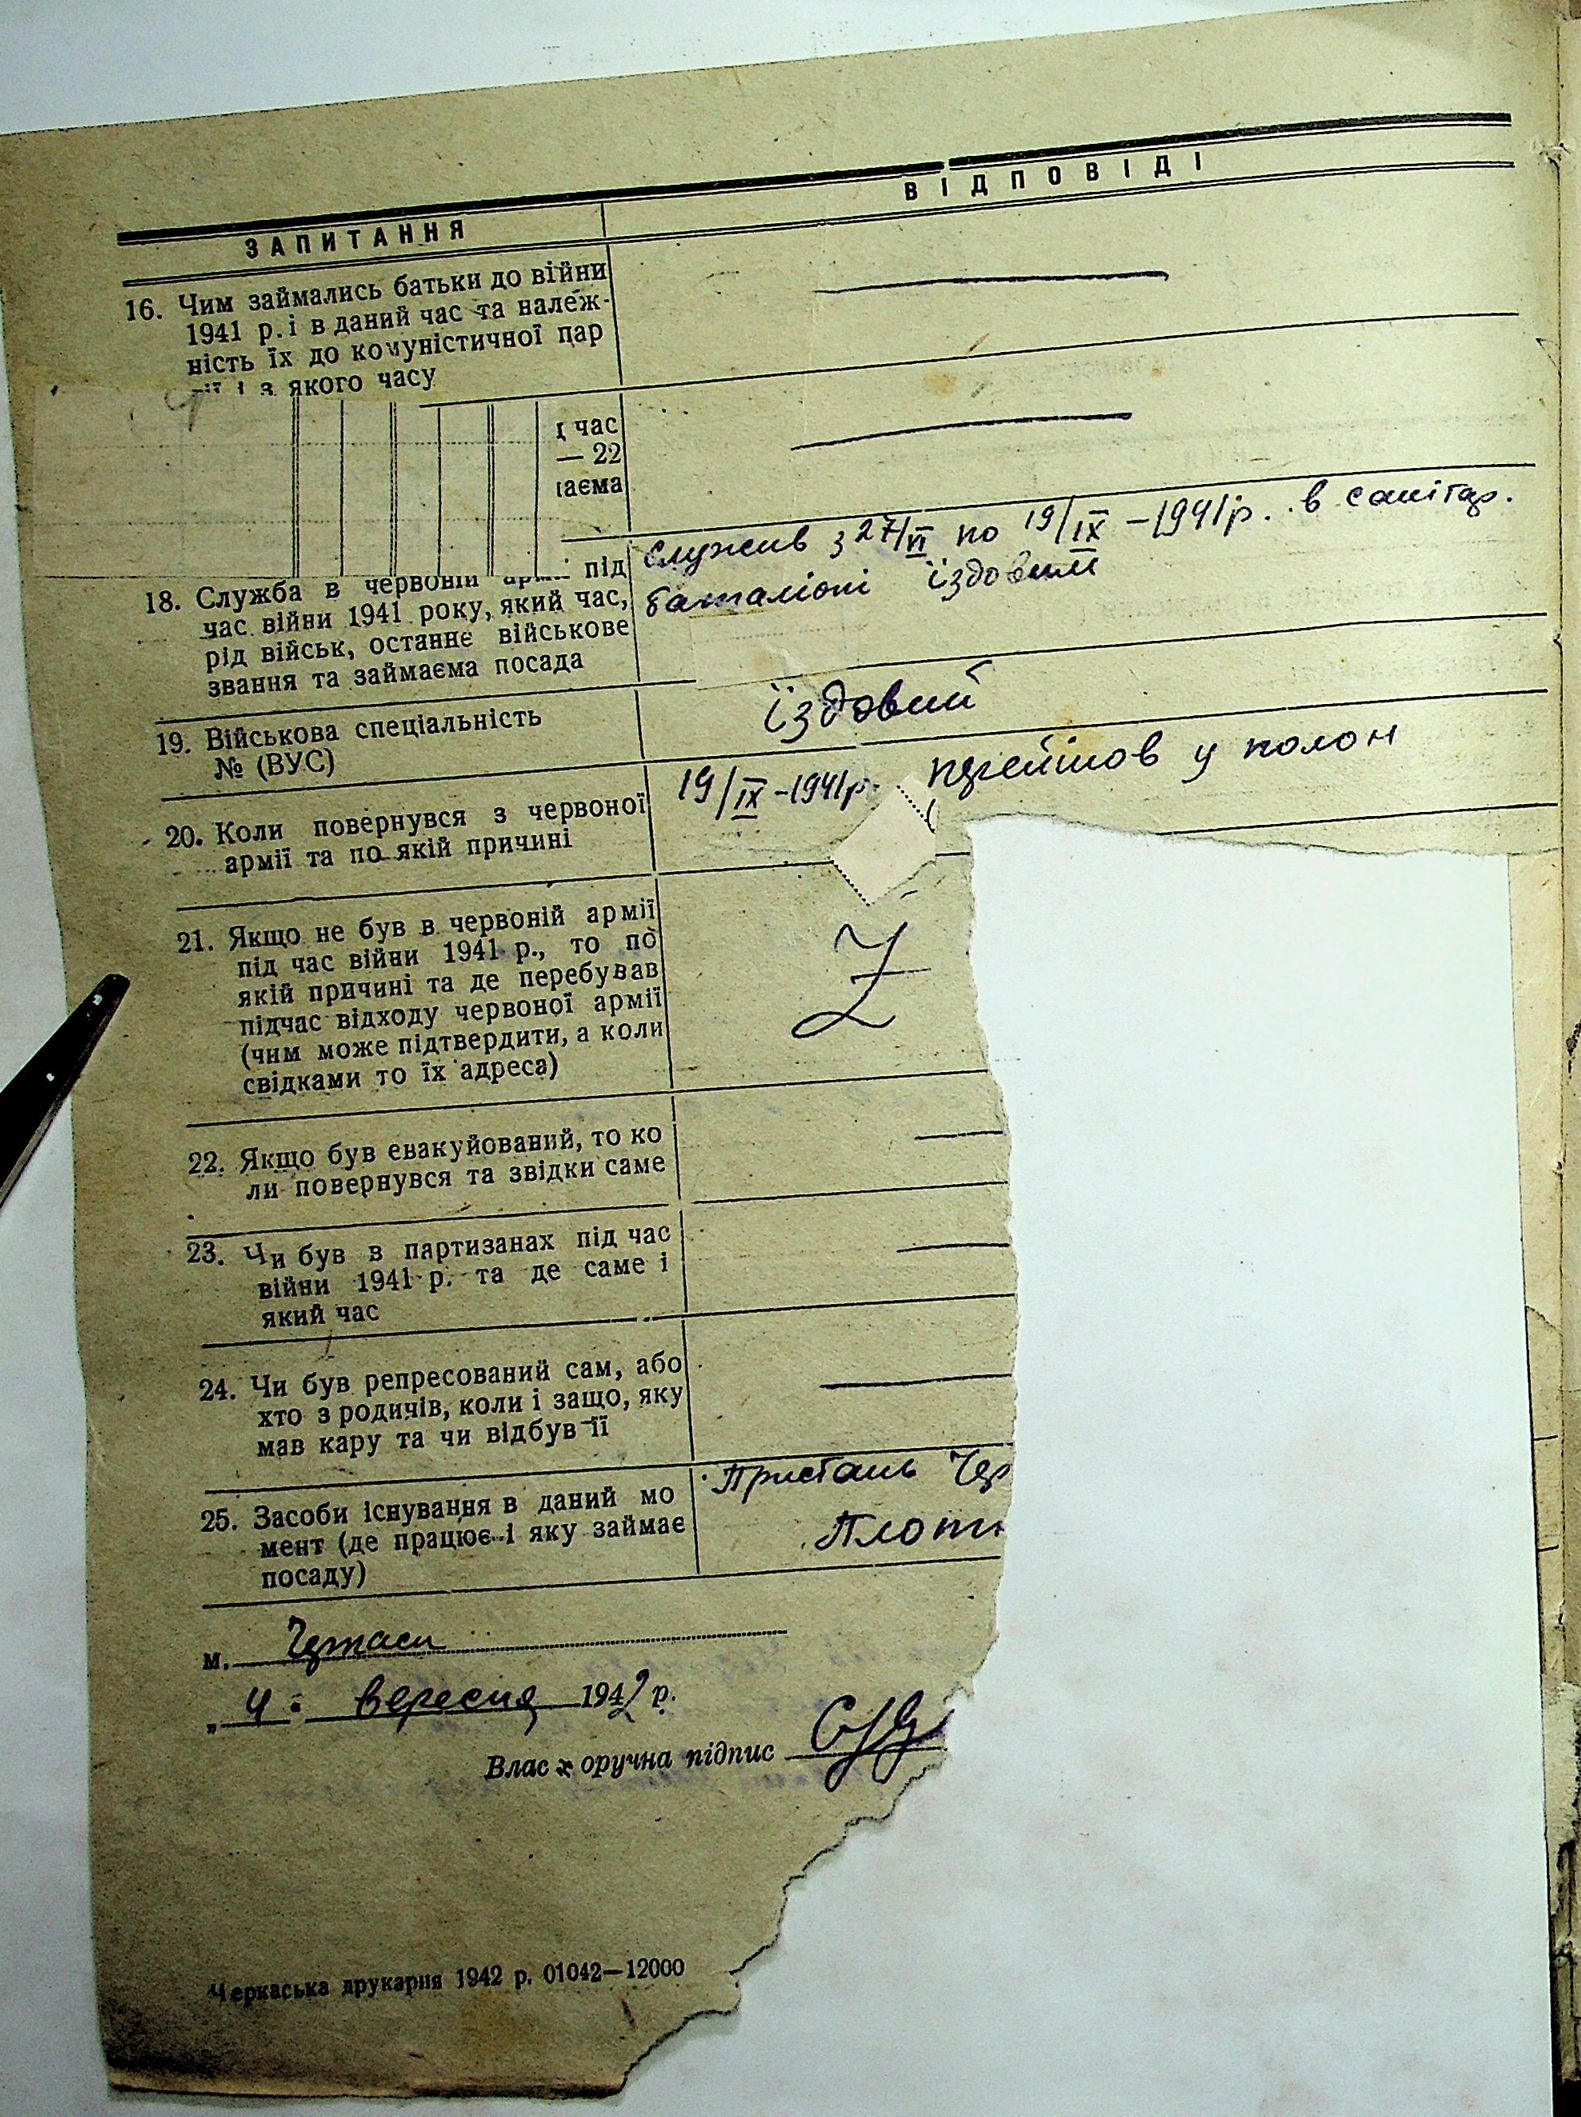 ЗАПИТАННЯ
ВІДПОВІДІ
16. Чим займались батьки до війни
1941 р. і в даний час та належ-
ність їх до комуністичної пар
якого часу
час
— 22
аєма
служив з 27/VI по 19/IX – 1941 р. в санітар.
баталіоні їздовим
18. Служба в червоній армії під
час війни 1941 року, який час,
рід військ, останнє військове
звання та займаєма посада
19. Військова спеціальність
№ (ВУС)
їздовий
20. Коли повернувся з червоної
армії та по якій причині
19/IX – 1941 р. перейшов у полон
21. Якщо не був в червоній армії
під час війни 1941 р., то по
якій причині та де перебував
підчас відходу червоної армії
(чим може підтвердити, а коли
свідками то їх адреса)
Z
22. Якщо був евакуйований, то ко
ли повернувся та звідки саме
23. Чи був в партизанах під час
війни 1941 р. та де саме і
який час
24. Чи був репресований сам, або
хто з родичів, коли і защо, яку
мав кару та чи відбув її
25. Засоби існування в даний мо
мент (де працює і яку займає
посаду)
Пристань Чер
Плотн
м. Черкаси
„ 4 " вересня 1942 р.
Власноручна підпис
Черкаська друкарня 1942 р. 01042—12000